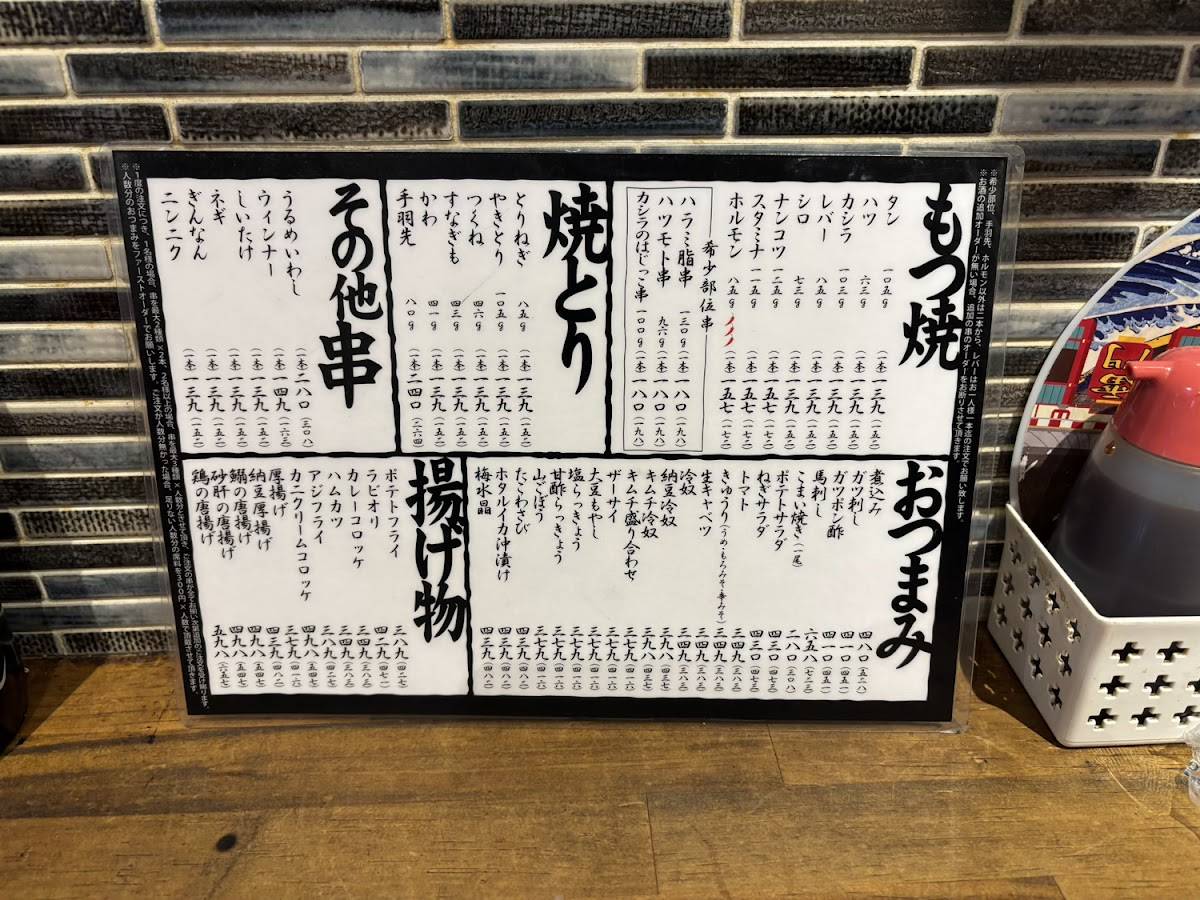 ※希少部位、手羽先、ホルモン以外は二本から、レバーはお一人様一本迄の注文でお願い致します。
※お酒の追加オーダーが無い場合、追加の串のオーダーをお断りさせて頂きます。
もつ焼
タン 一〇五g (一本)一三九(一五二)
ハツ 六三g (一本)一三九(一五二)
カシラ 一〇三g (一本)一三九(一五二)
レバー 八五g (一本)一三九(一五二)
シロ 七三g (一本)一三九(一五二)
ナンコツ 一二五g (一本)一五七(一七二)
スタミナ 一一五g (一本)一五七(一七二)
ホルモン 八五g (一本)一五七(一七二)
希少部位串
ハラミ脂串 一三〇g (一本)一八〇(一九八)
ハツモト串 九六g (一本)一八〇(一九八)
カシラのはじっこ串 一〇〇g (一本)一八〇(一九八)
焼とり
とりねぎ 八五g (一本)一三九(一五二)
やきとり 一〇五g (一本)一三九(一五二)
つくね 四六g (一本)一三九(一五二)
すなぎも 四三g (一本)一三九(一五二)
かわ 四一g (一本)一三九(一五二)
手羽先 八〇g (一本)二四〇(二六四)
その他串
うるめいわし (一本)二八〇(三〇八)
ウィンナー (一本)一四九(一六三)
しいたけ (一本)一三九(一五二)
ネギ (一本)一三九(一五二)
ぎんなん (一本)一三九(一五二)
ニンニク (一本)一三九(一五二)
おつまみ
煮込み 四八〇(五二八)
ガツ刺し 四一〇(四五一)
ガツポン酢 四一〇(四五一)
馬刺し 六五八(七二三)
こまい焼き(一尾) 二八〇(三〇八)
ポテトサラダ 四三〇(四七三)
ねぎサラダ 四三〇(四七三)
トマト 三四九(三八三)
きゅうり(うめ・もろみそ・辛みそ) 三四九(三八三)
生キャベツ 三四九(三八三)
冷奴 三四九(三八三)
納豆冷奴 三九八(四三七)
キムチ冷奴 三九八(四三七)
キムチ盛り合わせ 三七九(四一六)
ザーサイ 三七九(四一六)
大豆もやし 三七九(四一六)
塩らっきょう 三七九(四一六)
甘酢らっきょう 三七九(四一六)
山ごぼう 三七九(四一六)
たこわさび 四三九(四八二)
ホタルイカ沖漬け 四三九(四八二)
梅水晶 四三九(四八二)
揚げ物
ポテトフライ 三八九(四二七)
ラビオリ 四二九(四七一)
カレーコロッケ 三四九(三八三)
ハムカツ 三八九(四二七)
アジフライ 四九八(五四七)
カニクリームコロッケ 三七九(四一六)
厚揚げ 四三九(四八二)
納豆厚揚げ 四九八(五四七)
鰯の唐揚げ 四九八(五四七)
砂肝の唐揚げ 四九八(五四七)
鶏の唐揚げ 五九八(六五七)
※1度の注文につき、1名様の場合、串を最大2種類×2本、2名様以上の場合、串を最大3種類×人数分とさせて頂き、ご注文の串が全てお揃い次第追加のご注文を受け賜ります。
※人数分のおつまみをファーストオーダーでお願いします。ご注文が人数分無かった場合、足りない人数分の席料を300円×人数で頂戴させて頂きます。